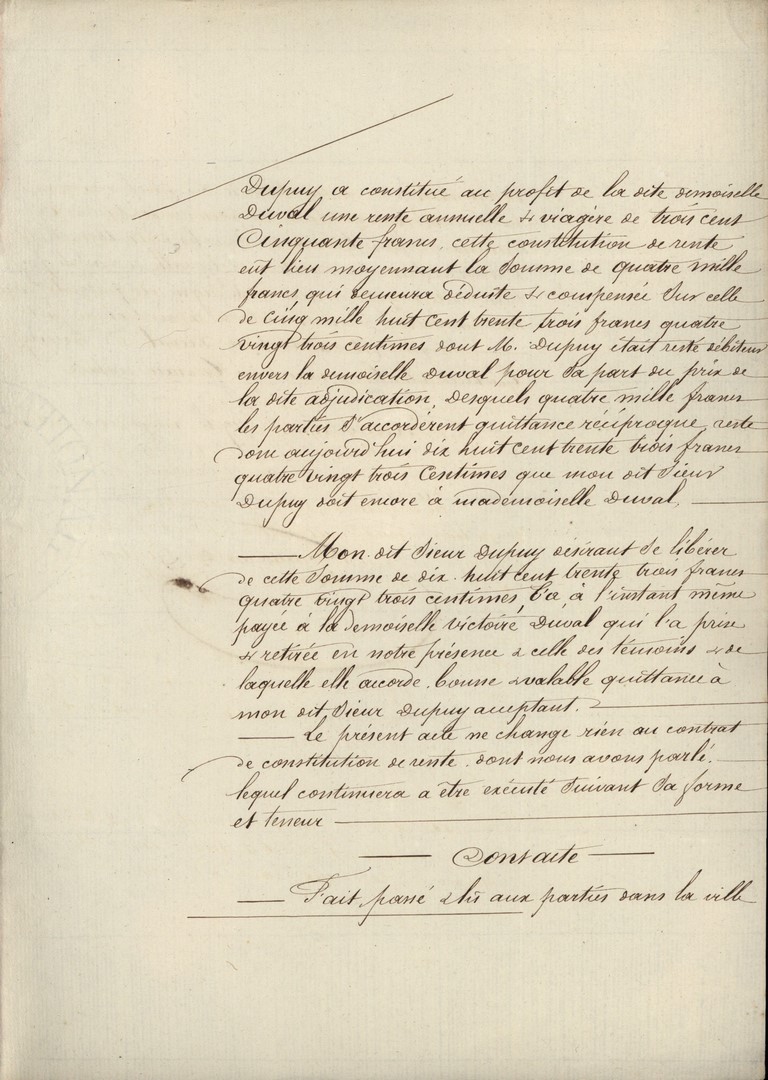 Dupuy a constitué au profit de la dite demoiselle
Duval une rente annuelle & viagère de trois cent
Cinquante francs, cette constitution de rente
eut lieu moyennant la somme de quatre mille
francs qui demeura déduite & compensée sur celle
de Cinq mille huit cent trente trois francs quatre
vingt trois centimes dont M. Dupuy était resté débiteur
envers la demoiselle Duval pour sa part du prix de
la dite adjudication, desquels quatre mille francs
les parties s'accordèrent quittance réciproque, reste
donc aujourd'hui dix huit cent trente trois francs
quatre vingt trois Centimes que mon dit Sieur
Dupuy doit encore à mademoiselle Duval,
Mon dit Sieur Dupuy désirant se libérer
de cette somme de dix-huit cent trente trois francs
quatre vingt trois centimes, l'a, à l'instant même
payée à la demoiselle victoire Duval qui l'a prise
& retirée en notre présence & celle des témoins & de
laquelle elle accorde bonne & valable quittance à
mon dit Sieur Dupuy acceptant.
Le présent acte ne change rien au contrat
de constitution de rente dont nous avons parlé,
lequel continuera a être exécuté suivant sa forme
et teneur
Dont acte
Fait, passé & lu aux parties dans la ville